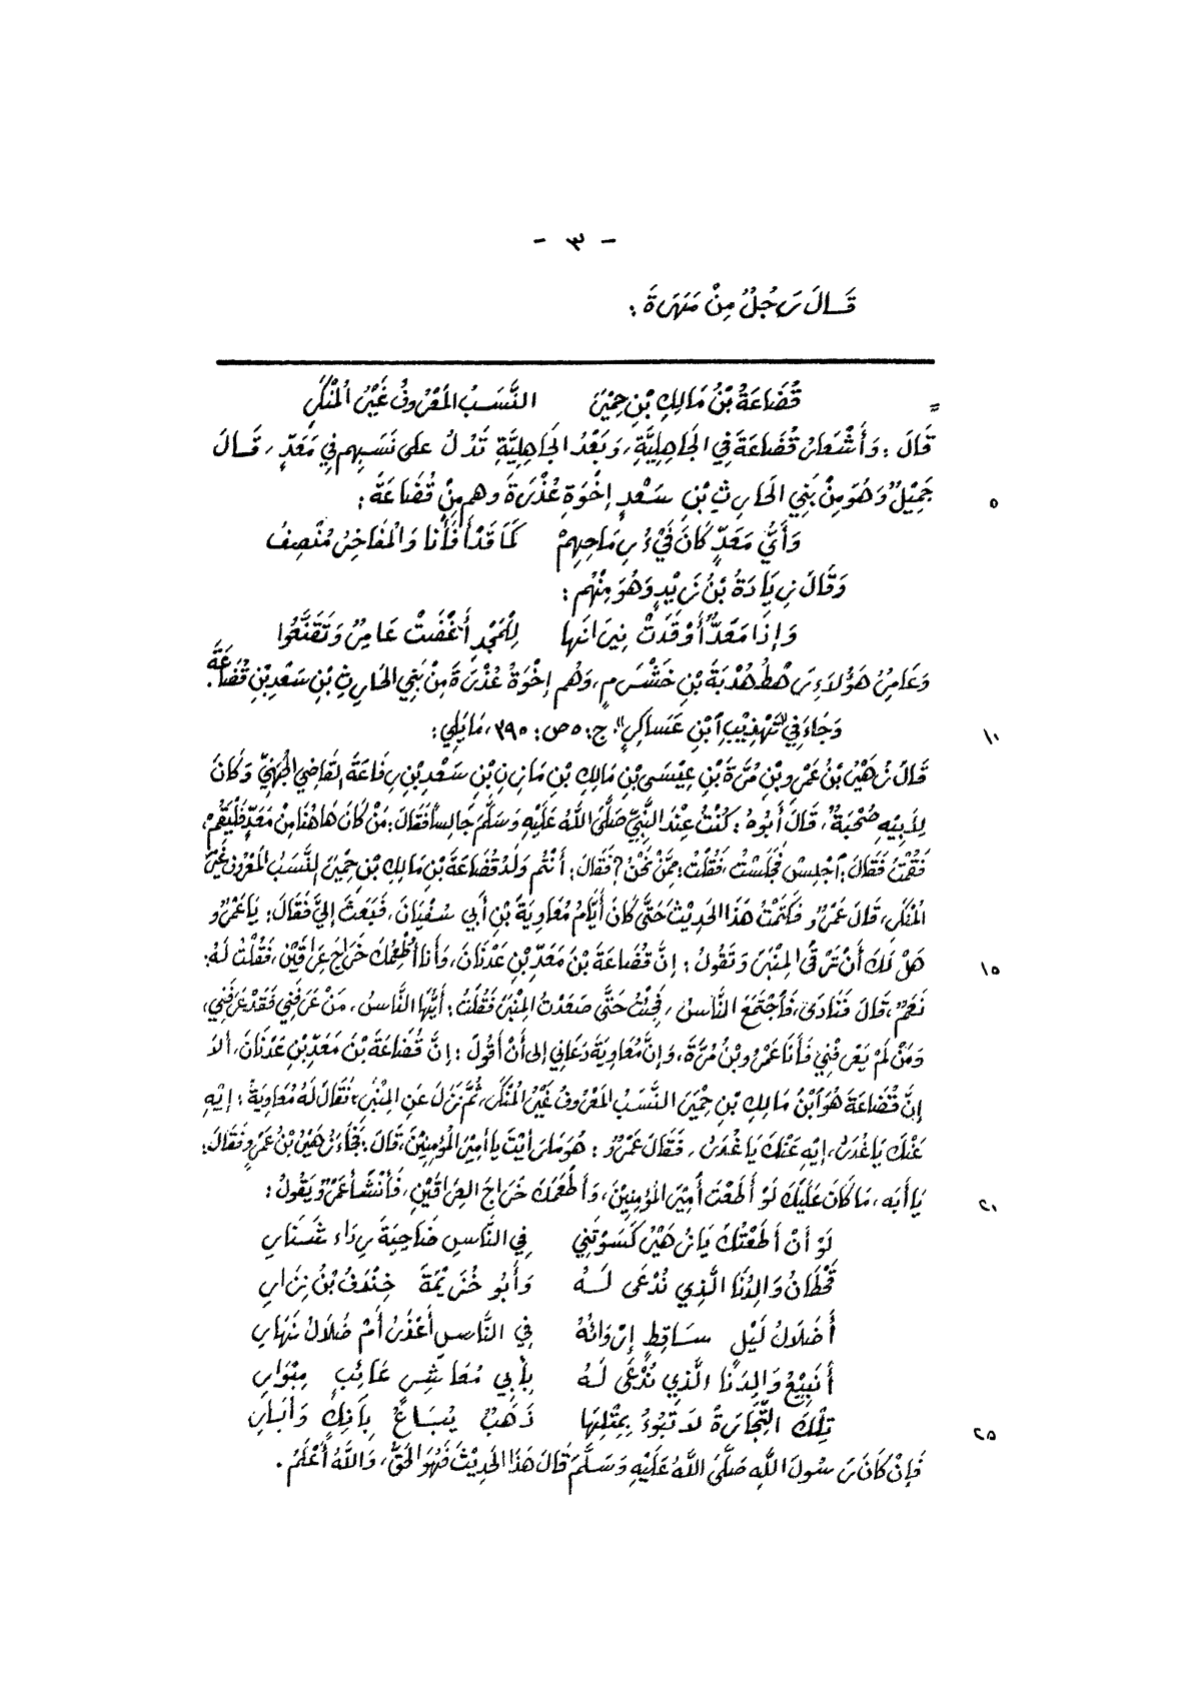 - ٣ -
قَالَ رَجُلٌ مِنْ مَهَرَةَ :
=
قُضَاعَةُ بْنُ مَالِكِ بْنِ حِمْيَرَ النَّسَبُ المَعْرُوفُ غَيْرُ المُنْكَرِ
قَالَ : وَأَشْعَارُ قُضَاعَةَ فِي الجَاهِلِيَّةِ، وَبَعْدَ الجَاهِلِيَّةِ تَدُلُّ على نَسَبِهِم فِي مَعَدٍّ، قَالَ
جَمِيْلٌ وَهُوَ مِنْ بَنِي الحَارِثِ بْنِ سَعْدٍ إِخْوَةِ عُذْرَةَ وهم مِنْ قُضَاعَةَ :
٥
وَأَيُّ مَعَدٍّ كَانَ فَيْءُ رِمَاحِهِمْ كَمَا قَدْ أَفَأْنَا وَالْمُفَاخِرُ مُنْصِفُ
وَقَالَ زِيَادَةُ بْنُ زَيْدٍ وَهُوَ مِنْهُم :
وَإِذَا مَعَدٌّ أَوْقَدَتْ نِيرَانَها لِلْمَجْدِ أَغْضَتْ عَامِرٌ وَتَقَنَّعُوا
وَعَامِرُ هَؤُلاَءِ رَهْطُ هُدْبَةَ بْنِ خَشْرَمٍ، وَهُم إِخْوَةُ عُذْرَةَ مِنْ بَنِي الحَارِثِ بْنِ سَعْدِ بْنِ قُضَاعَةَ.
وَجَاءَ فِي "تَهْذِيْبِ ابْنِ عَسَاكِرٍ" ج: ٥ ص: ٣٩٥، مَا يَلِي :
١٠
قَالَ زُهَيْرُ بْنُ عَمْرِو بْنِ مُرَّةَ بْنِ عِيْسَى بْنِ مَالِكِ بْنِ مَازِنِ بْنِ سَعْدِ بْنِ رِفَاعَةَ القَاضِي الجُهَنِيِّ وَكَانَ
لِأَبِيْهِ صُحْبَةٌ، قَالَ أَبُوهُ : كُنْتُ عِنْدَ النَّبِيِّ صَلَّى اللهُ عَلَيْهِ وَسَلَّمَ جَالِساً فَقَالَ : مَنْ كَانَ هَاهُنَا مِنْ مَعَدٍّ فَلْيَقُمْ،
فَقُمْتُ فَقَالَ : اجْلِسْ فَجَلَسْتُ، فَقُلْتُ : مِمَّنْ نَحْنُ؟ فَقَالَ : أَنْتُم وَلَدُ قُضَاعَةَ بْنِ مَالِكِ بْنِ حِمْيَرَ النَّسَبُ المَعْرُوفُ غَيْرُ
المُنْكَرِ، قَالَ عَمْرٌو فَكَتَمْتُ هَذَا الحَدِيْثَ حَتَّى كَانَ أَيَّامُ مُعَاوِيَةَ بْنِ أَبِي سُفْيَانَ، فَبَعَثَ إِلَيَّ فَقَالَ : يَا عَمْرُو
هَلْ لَكَ أَنْ تَرْقَى المِنْبَرَ وَتَقُولُ : إِنَّ قُضَاعَةَ بْنَ مَعَدِّ بْنِ عَدْنَانَ، وَأَنَا أُطْعِمُكَ خَرَاجَ عِرَاقَيْنِ، فَقُلْتُ لَهُ :
١٥
نَعَمْ، قَالَ فَنَادَى، فَاجْتَمَعَ النَّاسُ، فَجِئْتُ حَتَّى صَعَدْتُ المِنْبَرَ فَقُلْتُ : أَيُّهَا النَّاسُ، مَنْ عَرَفَنِي فَقَدْ عَرَفَنِي،
وَمَنْ لَمْ يَعْرِفْنِي فَأَنَا عَمْرُو بْنُ مُرَّةَ، وَإِنَّ مُعَاوِيَةَ دَعَانِي إِلى أَنْ أَقُولَ : إِنَّ قُضَاعَةَ بْنَ مَعَدِّ بْنِ عَدْنَانَ، أَلاَ
إِنَّ قُضَاعَةَ هُوَ ابْنُ مَالِكِ بْنِ حِمْيَرَ النَّسَبُ المَعْرُوفُ غَيْرُ المُنْكَرِ، ثُمَّ نَزَلَ عَنِ المِنْبَرِ، فَقَالَ لَهُ مُعَاوِيَةُ : إِيْهِ
عَنْكَ يَا غُدَرُ، إِيْهِ عَنْكَ يَا غُدَرُ، فَقَالَ عَمْرٌو : هُوَ مَا رَأَيْتَ يَا أَمِيْرَ المُؤْمِنِيْنَ، قَالَ : فَجَاءَ زُهَيْرُ بْنُ عَمْرٍو فَقَالَ :
يَا أَبَه، مَا كَانَ عَلَيْكَ لَوْ أَطَعْتَ أَمِيْرَ المُؤْمِنِيْنَ، وَأَطْعَمَكَ خَرَاجَ العِرَاقَيْنِ، فَأَنْشَأَ عَمْرٌو يَقُولُ :
٢٠
لَوْ أَنْ أَطَعْتُكَ يَا زُهَيْرُ كَسَوْتَنِي فِي النَّاسِ ضَاحِيَةً رِدَاءَ شَنَارِ
قَحْطَانُ وَالِدُنَا الَّذِي نُدْعَى لَهُ وَأَبُو خُزَيْمَةَ خِنْدِفُ بْنُ نِزَارِ
أَضَلَالُ لَيْلٍ سَاقِطٍ إِرْوَاثُهُ فِي النَّاسِ أَعْذَرُ أَمْ ضَلَالُ نَهَارِ
أَنَبِيْعُ وَالِدَنَا الَّذِي نُدْعَى لَهُ بِأَبِي مُعَاشِرٍ غَائِبٍ مِتْوَارِ
تِلْكَ التِّجَارَةُ لاَ تَبُوءُ بِمِثْلِهَا ذَهَبٌ يُبَاعُ بِآنِكٍ وَأَبَارِ
٢٥
فَإِنْ كَانَ رَسُولَ اللَّهِ صَلَّى اللهُ عَلَيْهِ وَسَلَّمَ قَالَ هَذَا الحَدِيْثَ فَهُوَ الحَقُّ، وَاللَّهُ أَعْلَمُ.